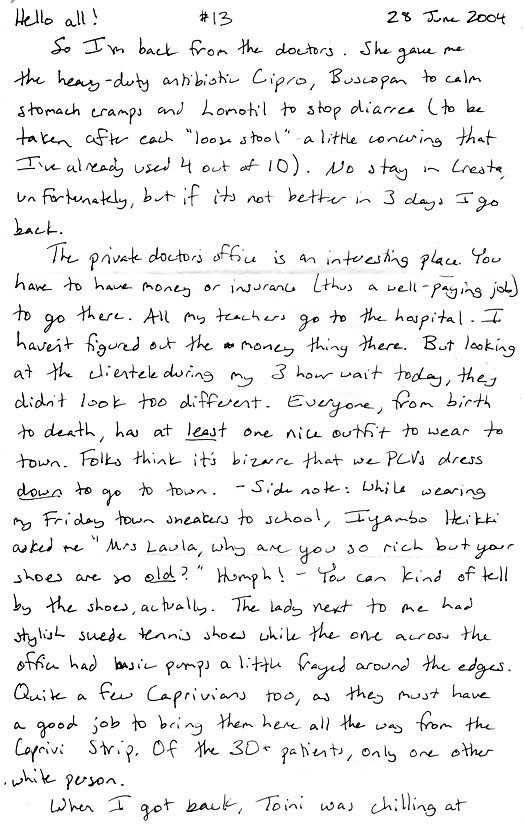 Hello all! #13 28 June 2004
So I'm back from the doctors. She gave me
the heavy-duty antibiotic Cipro, Buscopan to calm
stomach cramps and Lomotil to stop diarrea (to be
taken after each "loose stool" - a little concuring that
I've already used 4 out of 10). No stay in Cresta,
unfortunately, but if its not better in 3 days I go
back.
The private doctors office is an interesting place. You
have to have money or insurance (thus a well-paying job)
to go there. All my teachers go to the hospital. I
haven't figured out the money thing there. But looking
at the clientele during my 3 hour wait today, they
didn't look too different. Everyone, from birth
to death, has at least one nice outfit to wear to
town. Folks think it's bizarre that we PCVs dress
down to go to town. - Side note: While wearing
my Friday town sneakers to school, Iyambo Heikki
asked me "Mrs Lavla, why are you so rich but your
shoes are so old?" Humph! - You can kind of tell
by the shoes, actually. The lady next to me had
stylish suede tennis shoes while the one across the
office had basic pumps a little frayed around the edges.
Quite a few Caprivians too, as they must have
a good job to bring them here all the way from the
Caprivi Strip. Of the 30+ patients, only one other
white person.
When I got back, Toini was chilling at